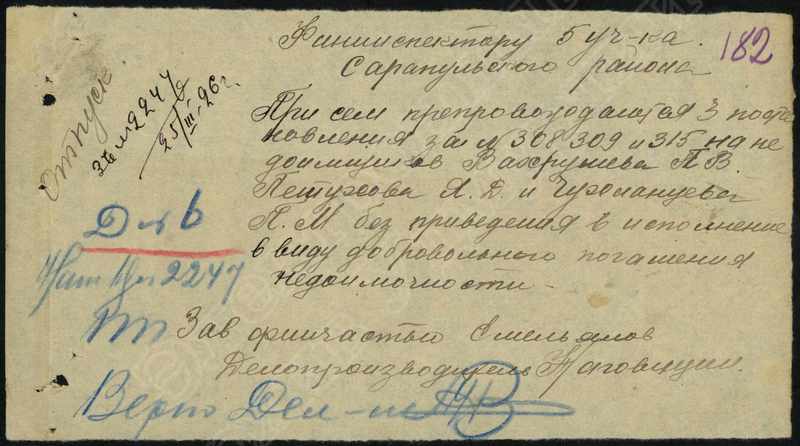 Фининспектору 5 уч-ка.
182
Сарапульского района
Отпуск
За № 2247
25/III-26 г.
При сем препровождается 3 поста
новления за № 308 309 и 315 на не
доимщиков Вахрушева П. В.
Петухова Я. Д. и
П. М без приведения в исполнение
в виду добровольного погашения
недоимочности -
Д № 6
2247
Зав финчастью Емельянов
Делопроизводитель
Верно Дел-ль